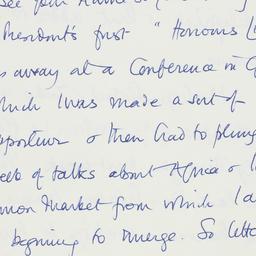 see your name
President's first "Honours L
s away at a Conference in G
hich I was made a sort of
pporteur & then had to plung
eek of talks about Africa &
mon Market from which I a
beginning to emerge. So